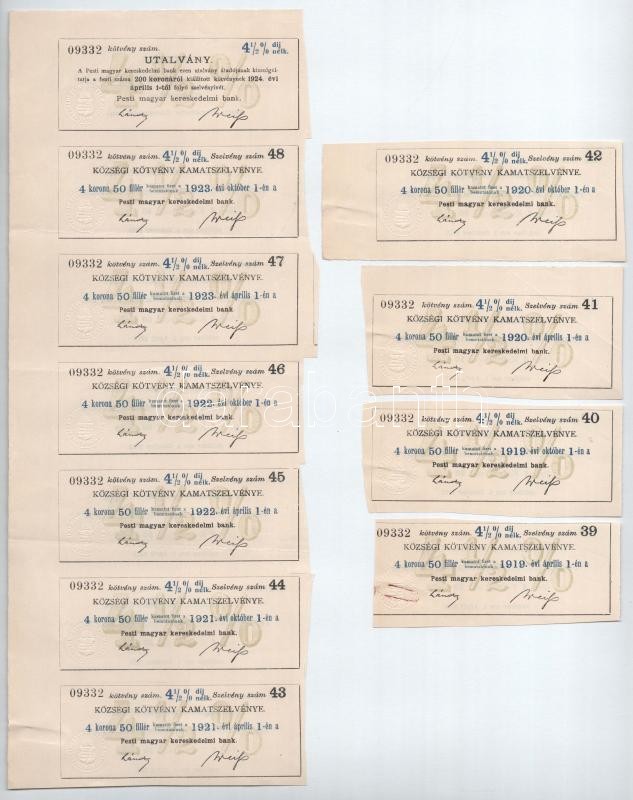 09332 kötvény szám. 4 1/2 % díj nélk.
UTALVÁNY.
A Pesti magyar kereskedelmi bank ezen utalvány átadójának kiszolgál-
tatja a fenti számu 200 koronáról kiállitott kötvénynek 1924. évi
április 1-től folyó szelvényivét.
Pesti magyar kereskedelmi bank.
Lánczy Weisz
09332 kötvény szám. 4 1/2 % díj nélk. Szelvény szám 48
KÖZSÉGI KÖTVÉNY KAMATSZELVÉNYE.
4 korona 50 fillér kamatot fizet a bemutatónak 1923. évi október 1-én a
Pesti magyar kereskedelmi bank.
Lánczy Weisz
09332 kötvény szám. 4 1/2 % díj nélk. Szelvény szám 47
KÖZSÉGI KÖTVÉNY KAMATSZELVÉNYE.
4 korona 50 fillér kamatot fizet a bemutatónak 1923. évi április 1-én a
Pesti magyar kereskedelmi bank.
Lánczy Weisz
09332 kötvény szám. 4 1/2 % díj nélk. Szelvény szám 46
KÖZSÉGI KÖTVÉNY KAMATSZELVÉNYE.
4 korona 50 fillér kamatot fizet a bemutatónak 1922. évi október 1-én a
Pesti magyar kereskedelmi bank.
Lánczy Weisz
09332 kötvény szám. 4 1/2 % díj nélk. Szelvény szám 45
KÖZSÉGI KÖTVÉNY KAMATSZELVÉNYE.
4 korona 50 fillér kamatot fizet a bemutatónak 1922. évi április 1-én a
Pesti magyar kereskedelmi bank.
Lánczy Weisz
09332 kötvény szám. 4 1/2 % díj nélk. Szelvény szám 44
KÖZSÉGI KÖTVÉNY KAMATSZELVÉNYE.
4 korona 50 fillér kamatot fizet a bemutatónak 1921. évi október 1-én a
Pesti magyar kereskedelmi bank.
Lánczy Weisz
09332 kötvény szám. 4 1/2 % díj nélk. Szelvény szám 43
KÖZSÉGI KÖTVÉNY KAMATSZELVÉNYE.
4 korona 50 fillér kamatot fizet a bemutatónak 1921. évi április 1-én a
Pesti magyar kereskedelmi bank.
Lánczy Weisz
09332 kötvény szám. 4 1/2 % díj nélk. Szelvény szám 42
KÖZSÉGI KÖTVÉNY KAMATSZELVÉNYE.
4 korona 50 fillér kamatot fizet a bemutatónak 1920. évi október 1-én a
Pesti magyar kereskedelmi bank.
Lánczy Weisz
09332 kötvény szám. 4 1/2 % díj nélk. Szelvény szám 41
KÖZSÉGI KÖTVÉNY KAMATSZELVÉNYE.
4 korona 50 fillér kamatot fizet a bemutatónak 1920. évi április 1-én a
Pesti magyar kereskedelmi bank.
Lánczy Weisz
09332 kötvény szám. 4 1/2 % díj nélk. Szelvény szám 40
KÖZSÉGI KÖTVÉNY KAMATSZELVÉNYE.
4 korona 50 fillér kamatot fizet a bemutatónak 1919. évi október 1-én a
Pesti magyar kereskedelmi bank.
Lánczy Weisz
09332 kötvény szám. 4 1/2 % díj nélk. Szelvény szám 39
KÖZSÉGI KÖTVÉNY KAMATSZELVÉNYE.
4 korona 50 fillér kamatot fizet a bemutatónak 1919. évi április 1-én a
Pesti magyar kereskedelmi bank.
Lánczy Weisz